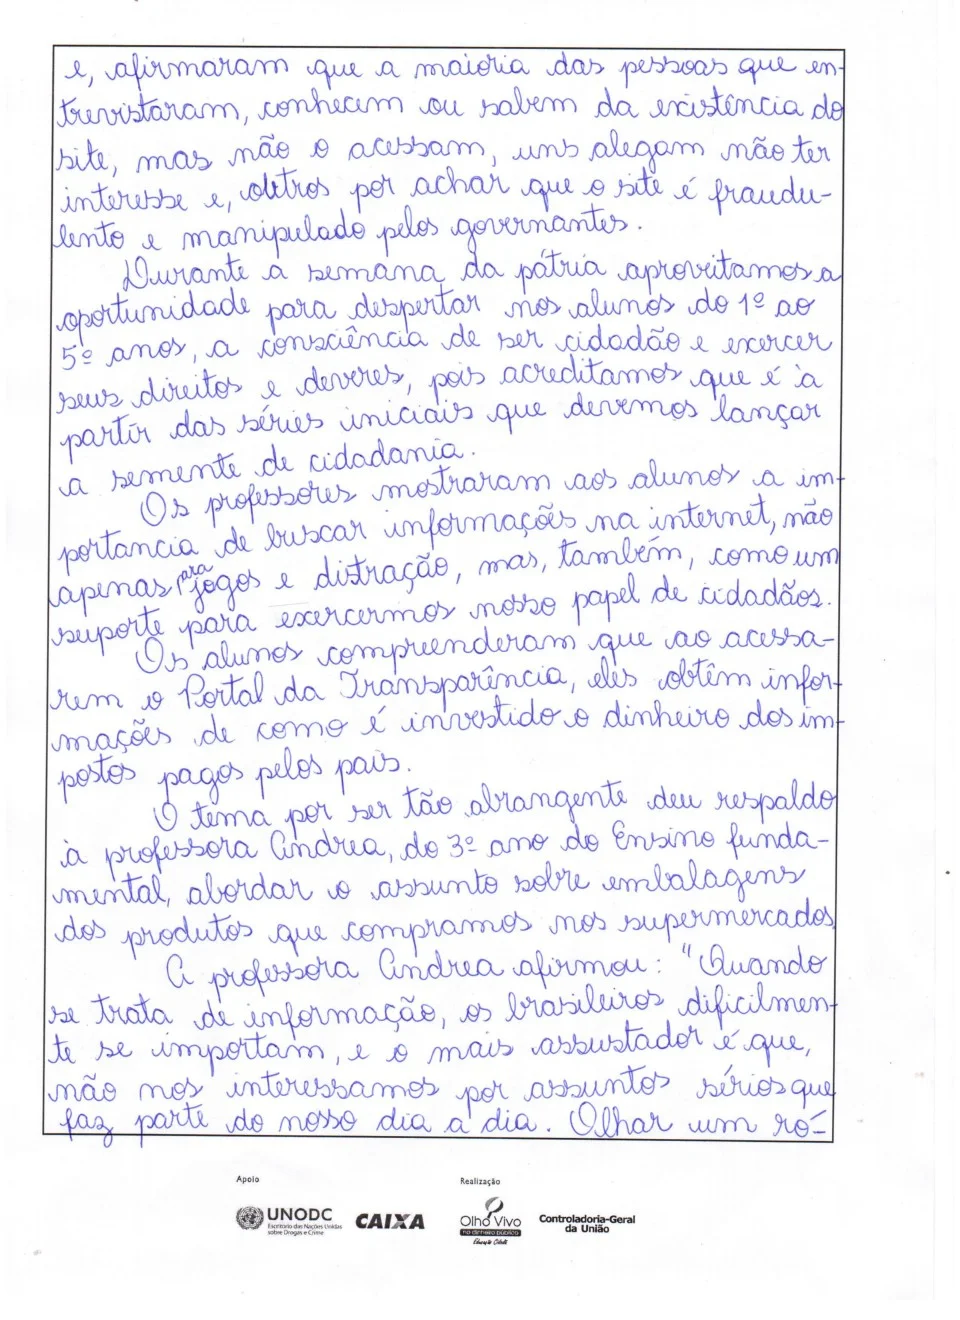 e, afirmaram que a maioria das pessoas que en-
trevistaram, conhecem ou sabem da existência do
site, mas não o acessam, uns alegam não ter
interesse e, outros por achar que o site é fraudu-
lento e manipulado pelos governantes.
Durante a semana da pátria aproveitamos a
oportunidade para despertar nos alunos do 1º ao
5º anos, a consciência de ser cidadão e exercer
seus direitos e deveres, pois acreditamos que é à
partir das séries iniciais que devemos lançar
a semente de cidadania.
Os professores mostraram aos alunos a im-
portancia de buscar informações na internet, não
apenas para jogos e distração, mas, também, como um
suporte para exercermos nosso papel de cidadãos.
Os alunos compreenderam que ao acessa-
rem o Portal da Transparência, eles obtêm infor-
mações de como é investido o dinheiro dos im-
postos pagos pelos pais.
O tema por ser tão abrangente deu respaldo
à professora Andrea, do 3º ano do Ensino funda-
mental, abordar o assunto sobre embalagens
dos produtos que compramos nos supermercados
A professora Andrea afirmou: "Quando
se trata de informação, os brasileiros dificilmen-
te se importam, e o mais assustador é que,
não nos interessamos por assuntos sérios que
faz parte do nosso dia a dia. Olhar um ró-
Apoio
Realização
UNODC
Escritório das Nações Unidas
sobre Drogas e Crime
CAIXA
Olho Vivo
no dinheiro público
Educação Cidadã
Controladoria-Geral
da União